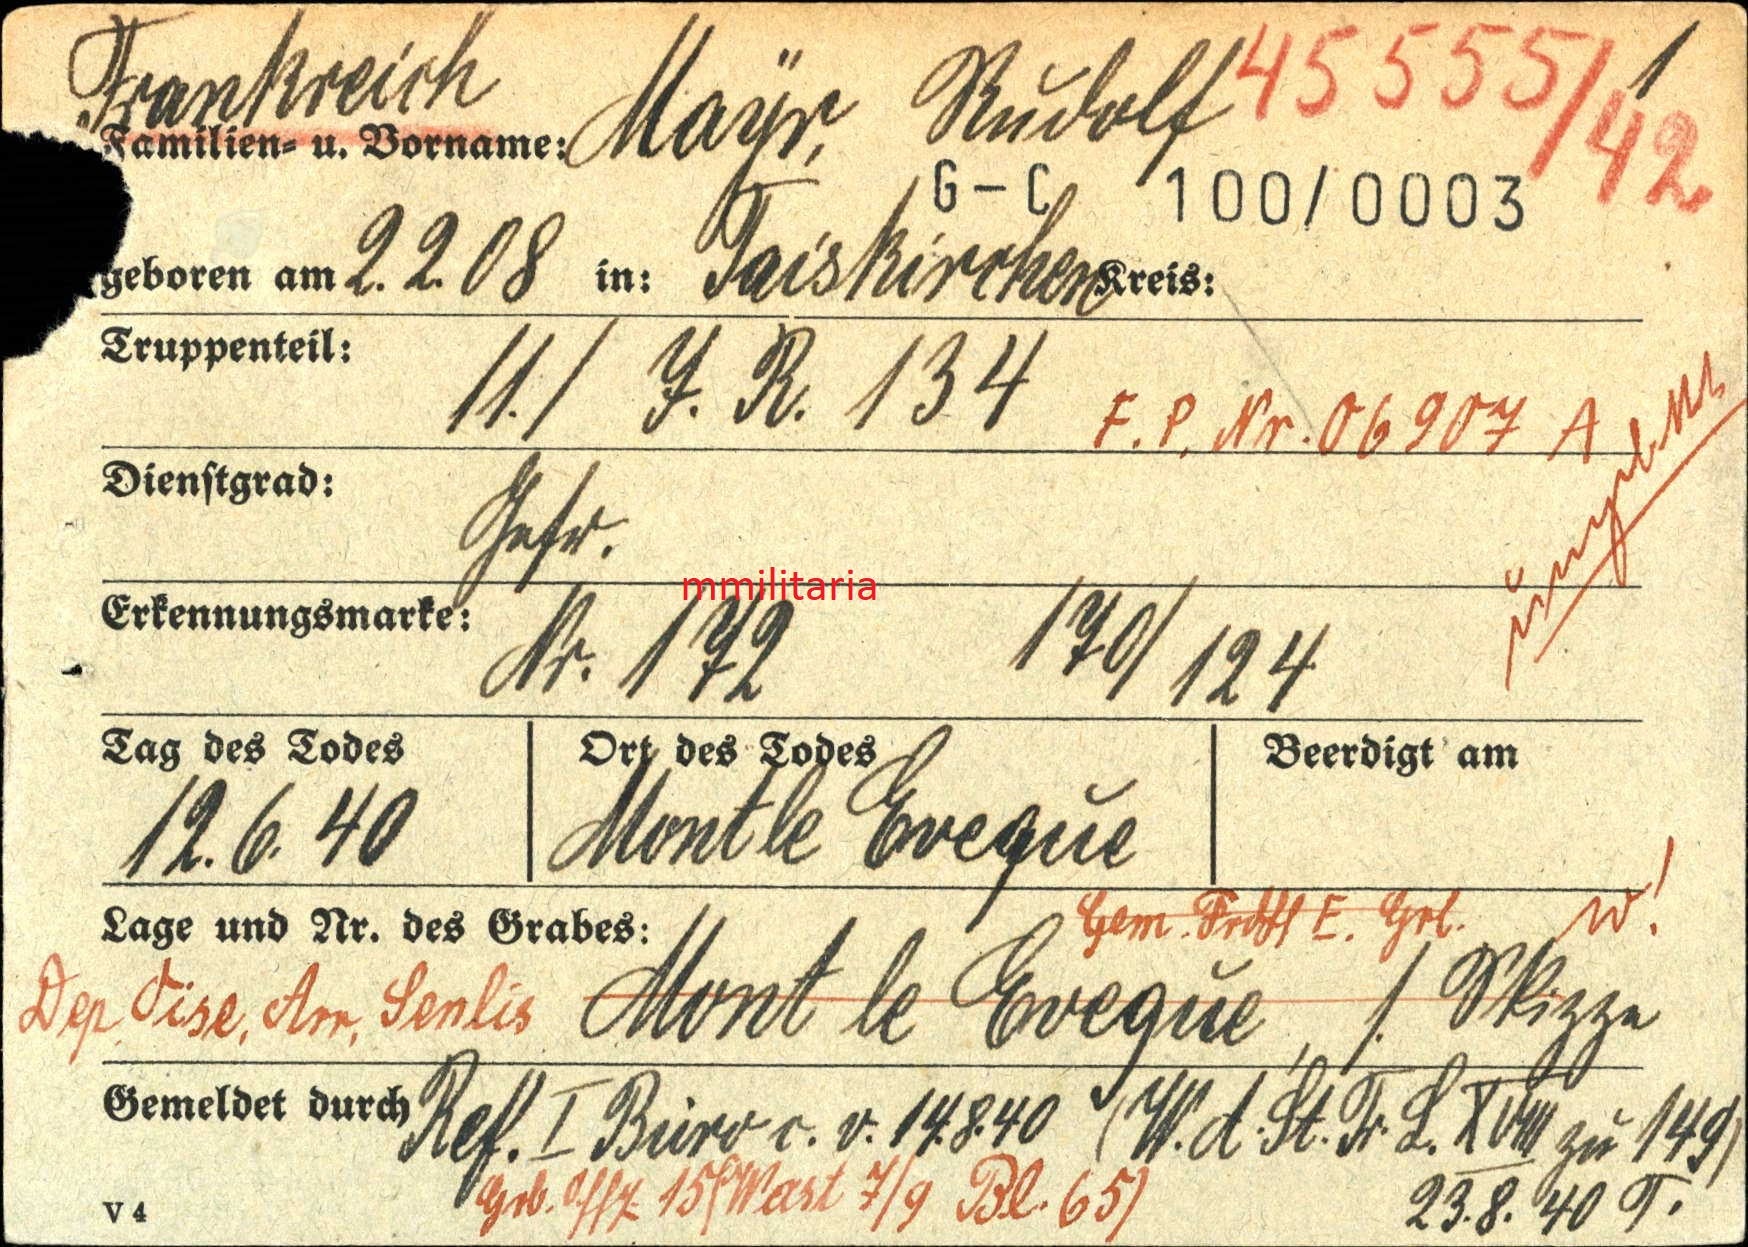 Frankreich 45555/42 1
Familien- u. Vorname: Mayr, Rudolf
G-C 100/0003
geboren am 2.2.08 in: Taiskirchen Kreis:
Truppenteil: 11./ J. R. 134
F.P. Nr. 06907 A
Dienstgrad: Gefr.
mmilitaria
Erkennungsmarke: Nr. 172 170/124
Tag des Todes Ort des Todes Beerdigt am
12.6.40 Mont le Eveque
Lage und Nr. des Grabes: Gem. Frdhf E. Grl. w!
Dep. Oise, Arr. Senlis Mont le Eveque, /. Skizze
Gemeldet durch Ref. I Büro c. v. 14.8.40 (W.d.St. Tr. L. XVIII zu 149)
Grb. Offz. 15 (Wast 7/9 Bl. 65)
23.8.40 T.
V 4